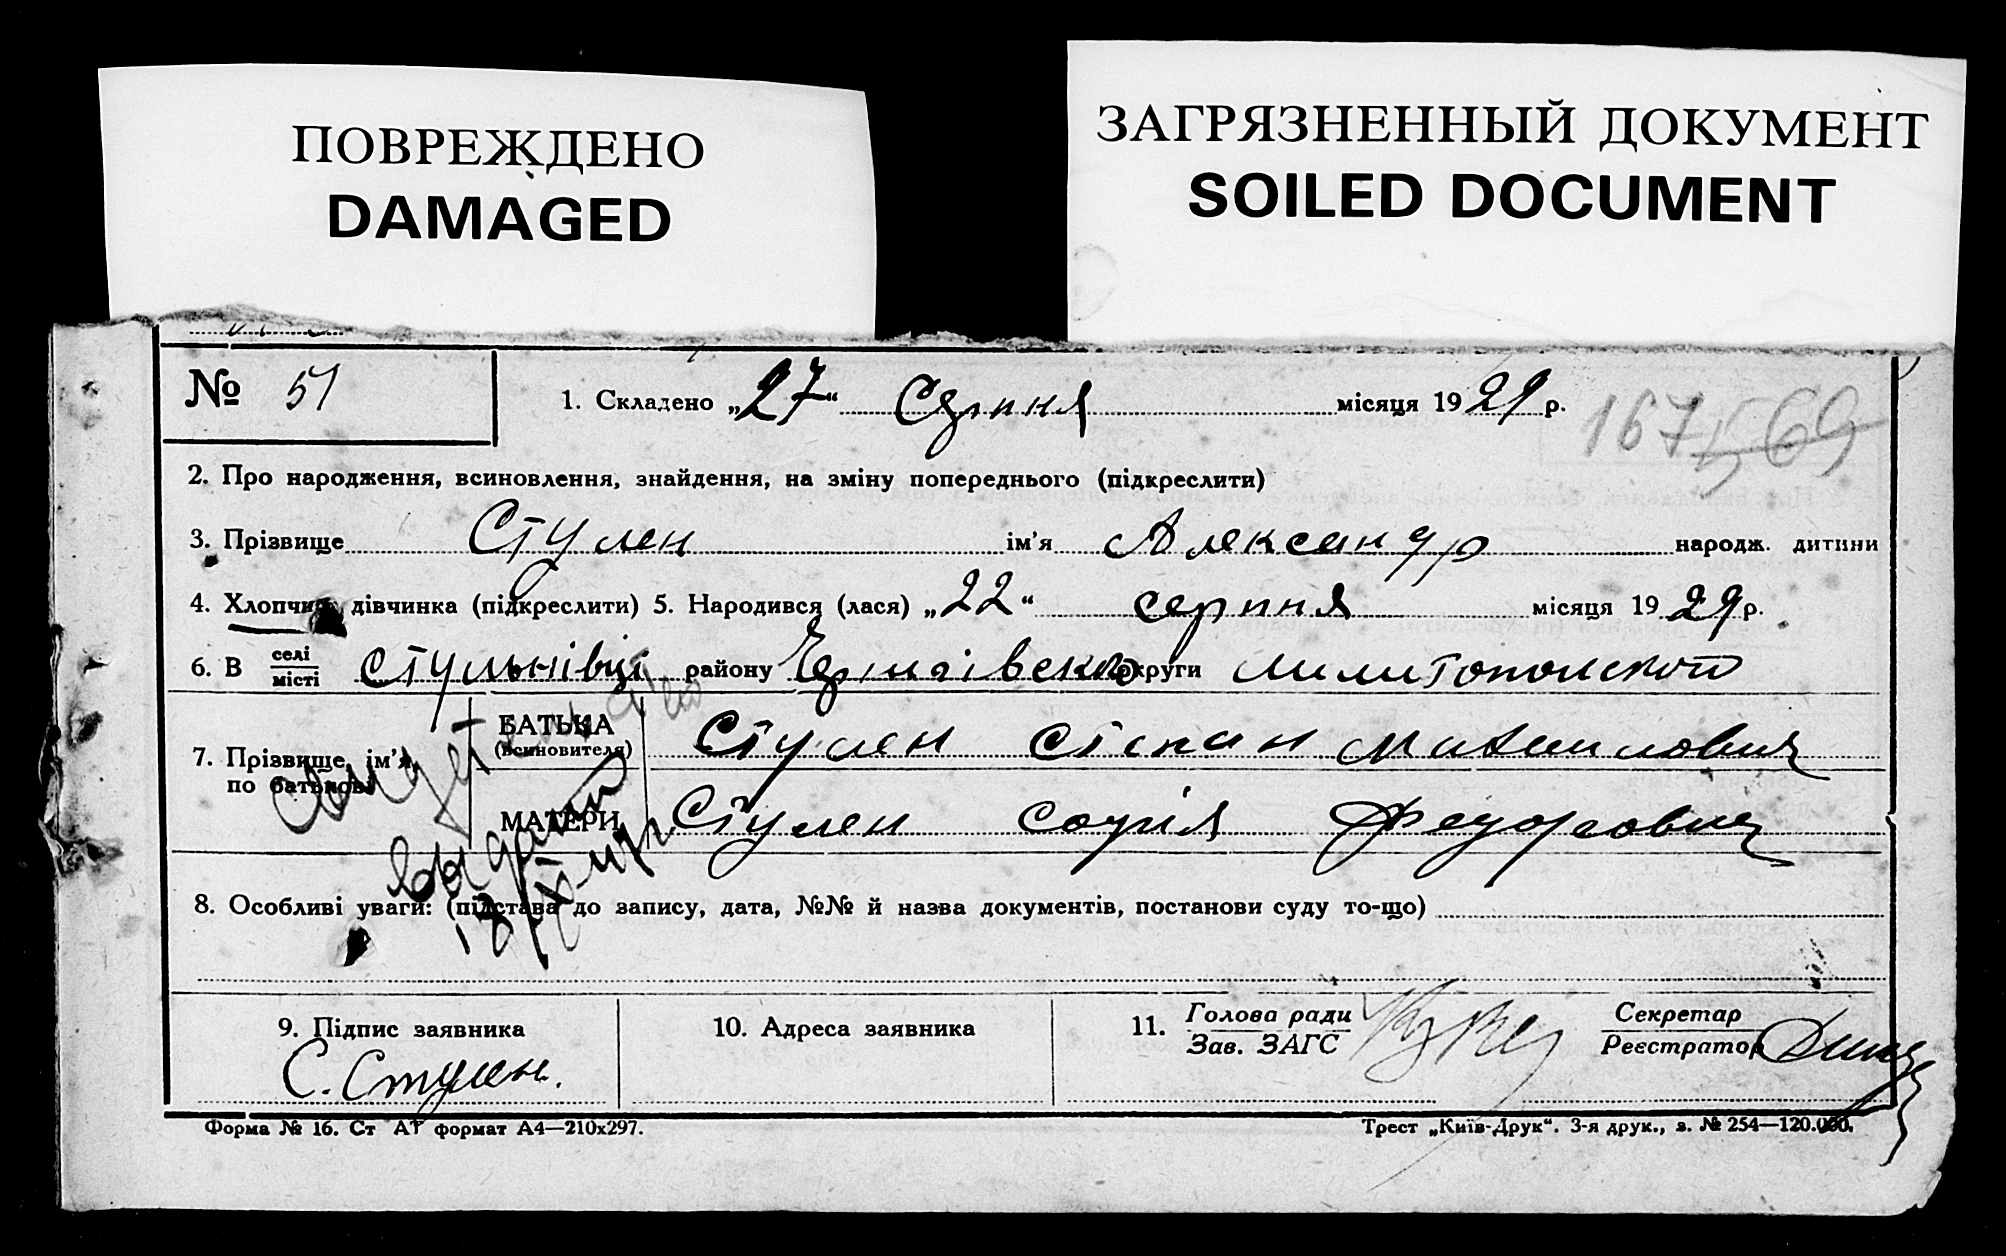 ПОВРЕЖДЕНО
DAMAGED
ЗАГРЯЗНЕННЫЙ ДОКУМЕНТ
SOILED DOCUMENT
№ 51
1. Складено „27“ Серпня місяця 1929 р.
167569
2. Про народження, всиновлення, знайдення, на зміну попереднього (підкреслити)
3. Прізвище Стулен ім'я Александр народж. дитини
4. Хлопчик, дівчинка (підкреслити) 5. Народився (лася) „22“ серпня місяця 1929 р.
6. В селі місті Стульнівці району округи
7. Прізвище, ім'я, по батькові
БАТЬКА (всиновителя) Стулен Степан
МАТЕРИ Стулен Софія Федоровна
выдано
8. Особливі уваги: (підстава до запису, дата, №№ й назва документів, постанови суду то-що)
9. Підпис заявника
С. Стулен.
10. Адреса заявника
11. Голова ради
Зав. ЗАГС
Секретар
Реєстратор
Форма № 16. Ст А1 формат А4—210х297.
Трест „Київ-Друк“. 3-я друк., з. № 254—120.000.